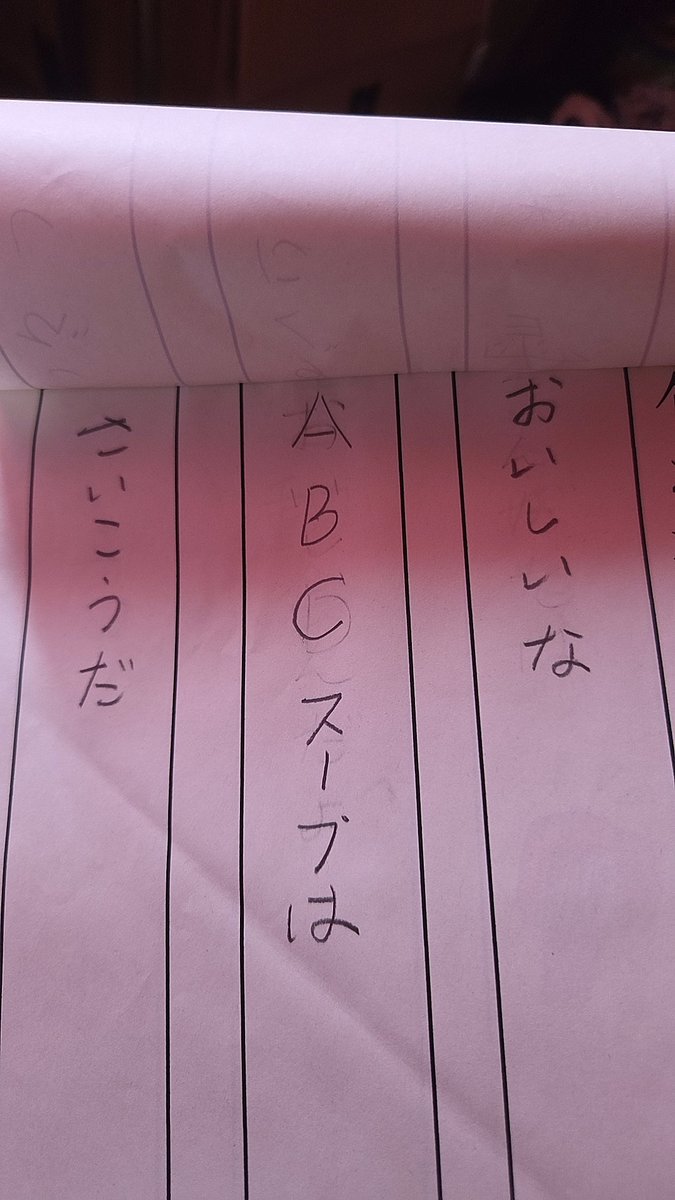 おいしいな
ABCスープは
さいこうだ